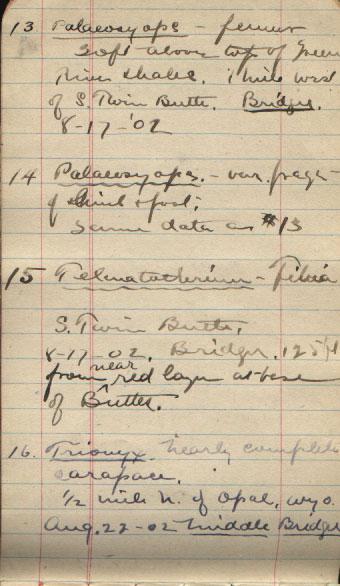 13 Palaeosyops - femur
50ft above top of Green
River shales. 1 mile west
of S. Twin Butte. Bridger.
8-17-'02
14 Palaeosyops. - var. frags -
of hind + foot;
same data as #13
15 Telmatotherium - Tibia
S. Twin Butte,
8-17-02. Bridger. 125 ft
from near red layer at base
of Butte.
16. Trionyx. nearly complete
carapace.
1/2 mile N. of Opal, Wyo.
Aug. 22-02 Middle Bridger